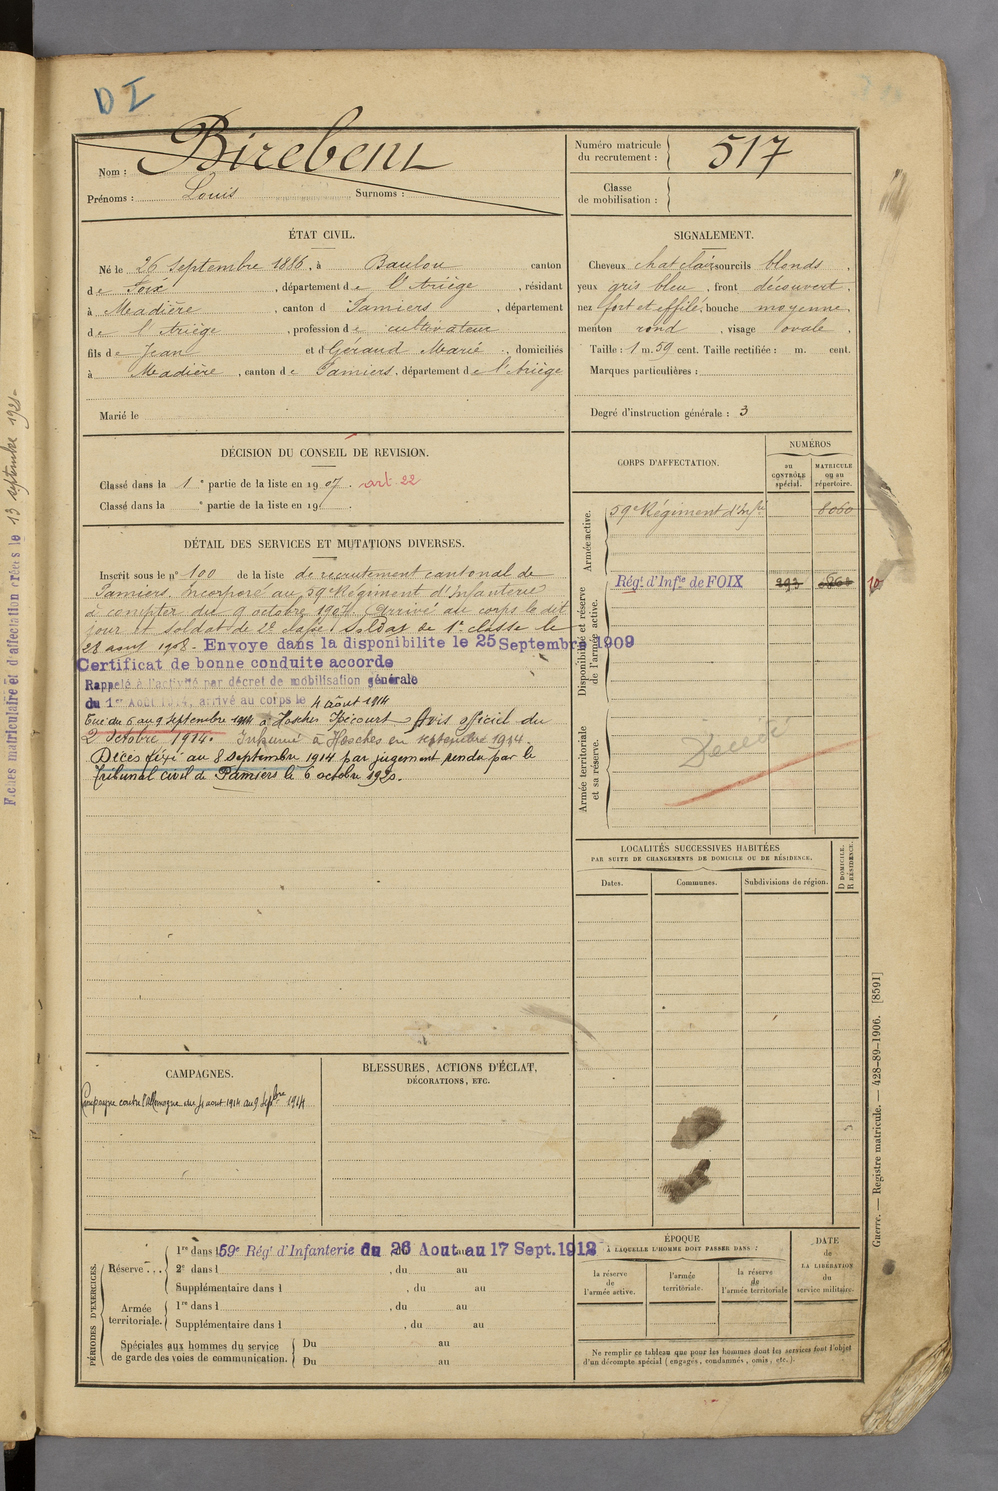 D I
Nom : Birebent
Prénoms : Louis Surnoms :
Numéro matricule
du recrutement :
517
Classe
de mobilisation :
ÉTAT CIVIL.
Né le 26 Septembre 1886, à Baulou canton
de Foix, département de l'Ariège, résidant
à Madière, canton d Pamiers, département
de l'Ariège, profession de cultivateur
fils de Jean et d Géraud Marie, domiciliés
à Madière, canton de Pamiers, département de l'Ariège
Marié le
SIGNALEMENT.
Cheveux chat clair sourcils blonds,
yeux gris bleu, front découvert,
nez fort et effilé, bouche moyenne,
menton rond, visage ovale,
Taille : 1 m. 59 cent. Taille rectifiée : m. cent.
Marques particulières :
Degré d'instruction générale : 3
DÉCISION DU CONSEIL DE REVISION.
Classé dans la 1e partie de la liste en 1907. art 22
Classé dans la e partie de la liste en 190
DÉTAIL DES SERVICES ET MUTATIONS DIVERSES.
Inscrit sous le n° 100 de la liste de recrutement cantonal de
Pamiers. Incorporé au 59e Régiment d'Infanterie
à compter du 9 octobre 1907. Arrivé au corps le dit
jour et soldat de 2e classe. Soldat de 1e classe le
28 aout 1908. Envoye dans la disponibilite le 25 Septembre 1909
Certificat de bonne conduite accorde
Rappelé à l'activité par décret de mobilisation générale
du 1er Août 1914, arrivé au corps le 4 août 1914
Tué du 6 au 9 septembre 1914 à Hosches Avis officiel du
2 Octobre 1914. Inhumé à Hosches en septembre 1914.
Décès fixé au 8 Septembre 1914 par jugement rendu par le
Tribunal civil de Pamiers le 6 octobre 1920.
CORPS D'AFFECTATION.
NUMÉROS
au CONTRÔLE spécial.
MATRICULE ou au répertoire.
Armée active.
59e Régiment d'Infie 8060
Disponibilité et réserve
de l'armée active.
Régt. d'Infie de FOIX 293
10
Armée territoriale
et sa réserve.
Décédé
LOCALITÉS SUCCESSIVES HABITÉES
PAR SUITE DE CHANGEMENTS DE DOMICILE OU DE RÉSIDENCE.
Dates. Communes. Subdivisions de région.
D DOMICILE.
R RÉSIDENCE.
CAMPAGNES.
Campagne contre l'Allemagne du 4 aout 1914 au 9 Septbre 1914
BLESSURES, ACTIONS D'ÉCLAT,
DÉCORATIONS, ETC.
PÉRIODES D'EXERCICES.
Réserve...
1re dans l 59e Rég. d'Infanterie du 26 Aout au 17 Sept. 1912
2e dans l , du au
Supplémentaire dans l , du au
Armée
territoriale.
1re dans l , du au
Supplémentaire dans l , du au
Spéciales aux hommes du service
de garde des voies de communication.
Du au
Du au
ÉPOQUE
À LAQUELLE L'HOMME DOIT PASSER DANS :
la réserve
de
l'armée active.
l'armée
territoriale.
la réserve
de
l'armée territoriale
DATE
de
LA LIBÉRATION
du
service militaire.
Ne remplir ce tableau que pour les hommes dont les services font l'objet
d'un décompte spécial (engagés, condamnés, omis, etc.).
Guerre. — Registre matricule. — 428-89-1906. [8591]
Fiches matriculaire et d'affectation créées le 13 septembre 1921-